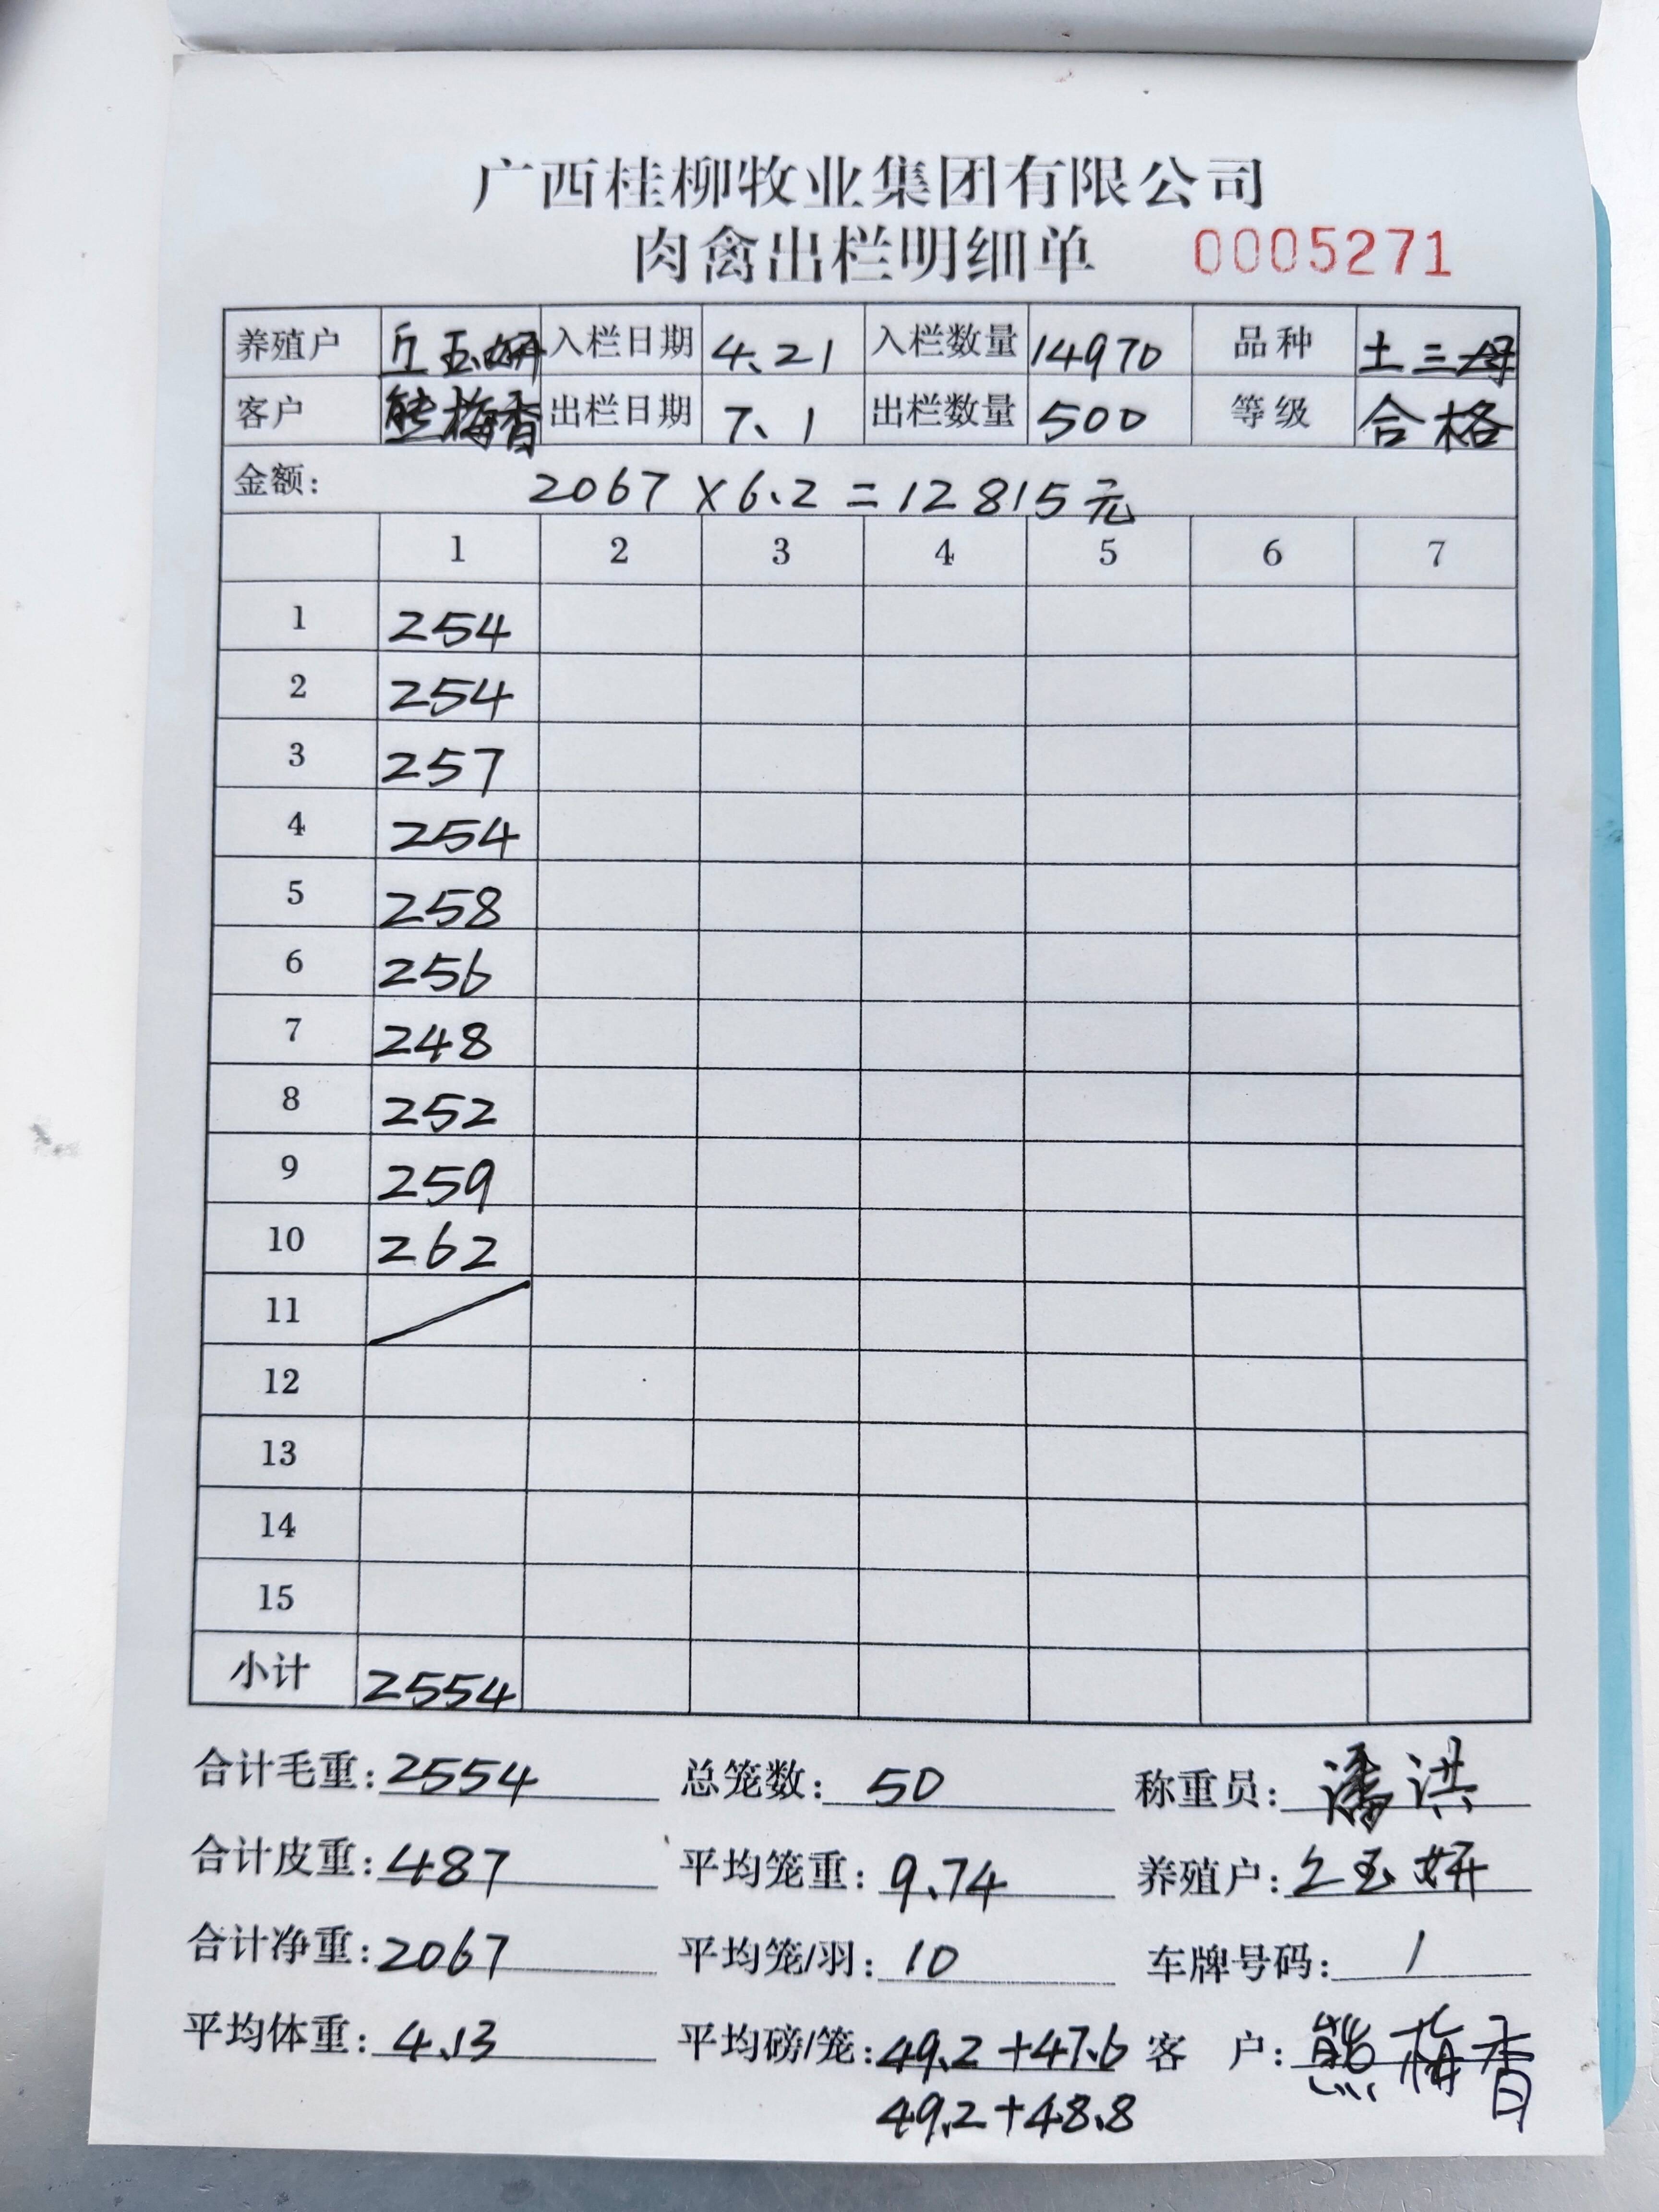 广西桂柳牧业集团有限公司
肉禽出栏明细单 0005271
养殖户 丘玉妍 入栏日期 4.21 入栏数量 14970 品种 土三母
客户 熊梅香 出栏日期 7.1 出栏数量 500 等级 合格
金额: 2067×6.2=12815元
1 2 3 4 5 6 7
1 254
2 254
3 257
4 254
5 258
6 256
7 248
8 252
9 259
10 262
11
12
13
14
15
小计 2554
合计毛重:2554 总笼数:50 称重员:潘洪
合计皮重:487 平均笼重:9.74 养殖户:丘玉妍
合计净重:2067 平均笼/羽:10 车牌号码:1
平均体重:4.13 平均磅/笼:49.2+47.6 客户:熊梅香
49.2+48.8